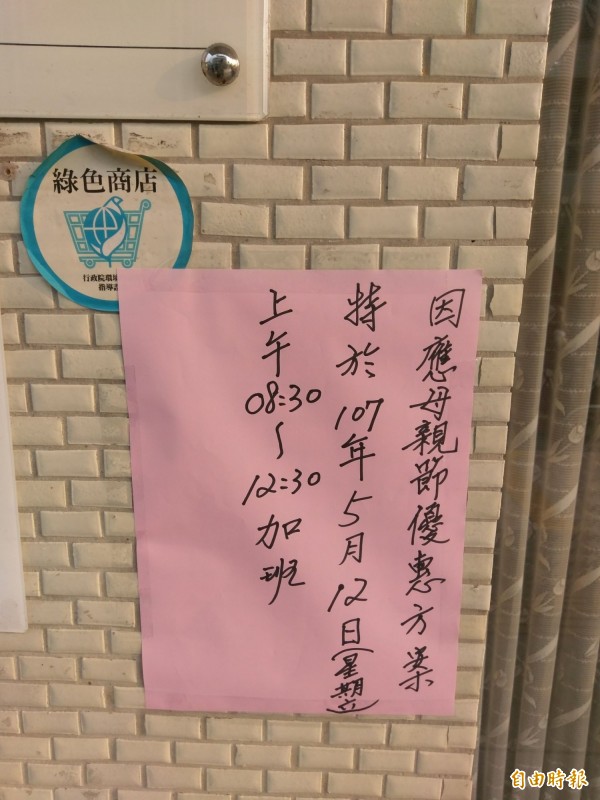 綠色商店
行政院環境
指導設
因應母親節優惠方案
特於107年5月12日(星期六)
上午08:30~12:30加班
自由時報